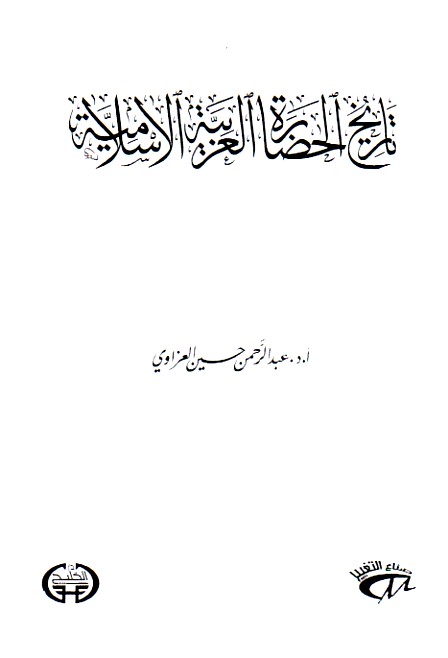 تاريخ الحضارة العربية الإسلامية
أ.د. عبد الرحمن حسين العزاوي
دار الخليج
صناع التغيير